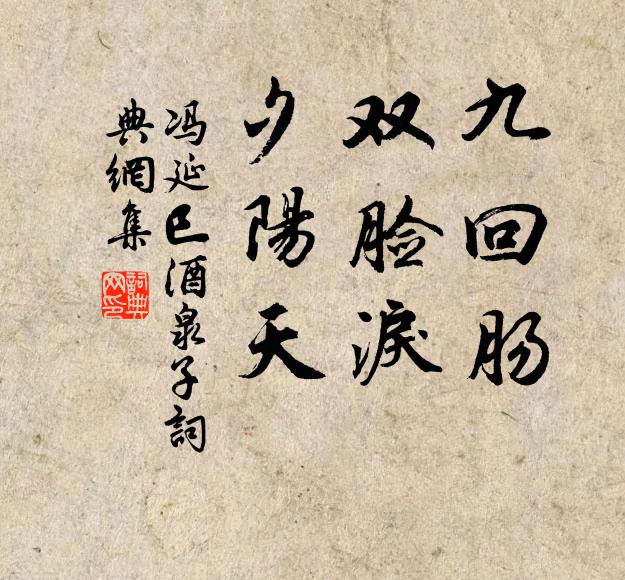 九回肠
双脸淚
夕陽天
冯延巳酒泉子詞
典網集
詞典网印